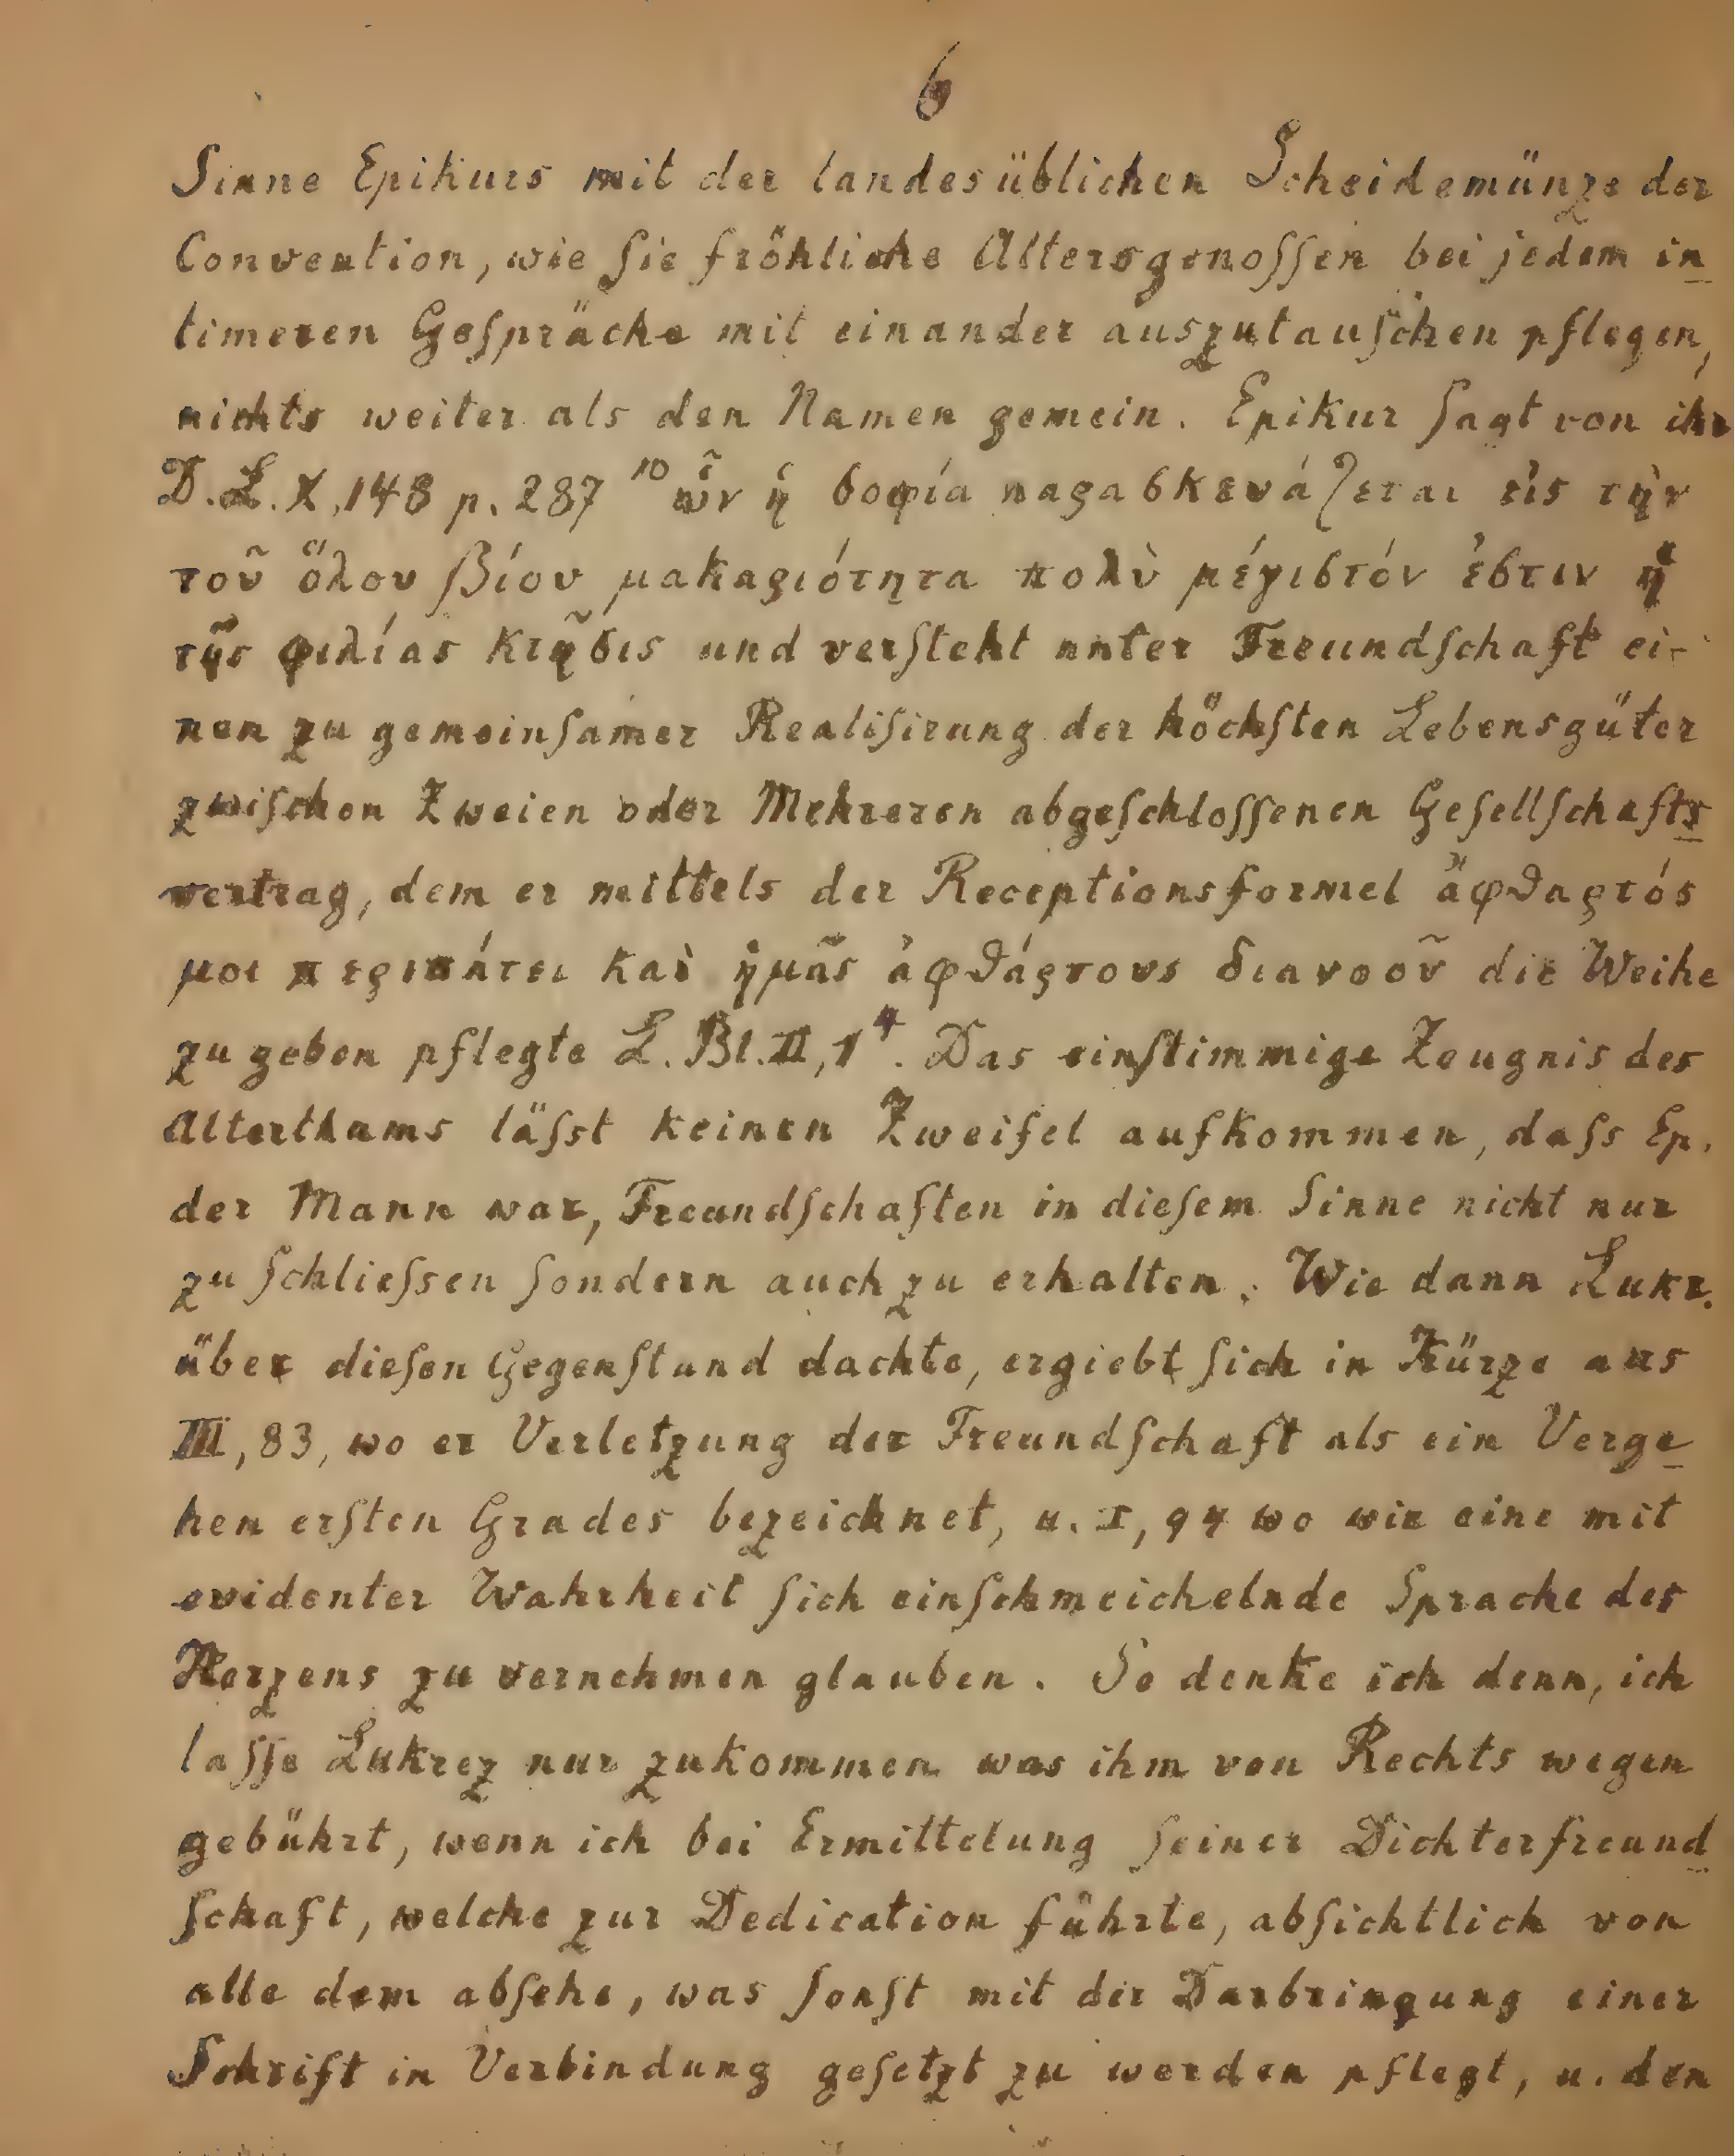 6
Sinne Epikurs mit der landesüblichen Scheidemünze der
Convention, wie ſie fröhliche Altersgenoſſen bei jedem in
timeren Geſpräche mit einander auszutauſchen pflegen,
nichts weiter als den Namen gemein. Epikur ſagt von ihr
D. L. X, 148 p. 287 10 ὧν ἡ σοφία παρασκευάζεται εἰς τὴν
τοῦ ὅλου βίου μακαριότητα πολὺ μέγιστόν ἐστιν ἡ
τῆς φιλίας κτῆσις und verſteht unter Freundſchaft ei-
nen zu gemeinſamer Realiſirung der höchſten Lebensgüter
zwiſchen Zweien oder Mehreren abgeſchloſſenen Geſellſchafts
vertrag, dem er mittels der Receptionsformel ἄφθαρτός
μοι περιπάτει καὶ ἡμᾶς ἀφθάρτους διανοοῦ die Weihe
zu geben pflegte L. Bl. II, 1 4. Das einſtimmige Zeugnis des
Alterthums läſst keinen Zweifel aufkommen, daſs Ep.
der Mann war, Freundſchaften in dieſem Sinne nicht nur
zu ſchlieſsen ſondern auch zu erhalten. Wie dann Lukr.
über dieſen Gegenſtand dachte, ergiebt ſich in Kürze aus
III, 83, wo er Verletzung der Freundſchaft als ein Verge
hen erſten Grades bezeichnet, u. I, 94 wo wir eine mit
evidenter Wahrheit ſich einſchmeichelnde Sprache des
Herzens zu vernehmen glauben. So denke ich denn, ich
laſſe Lukrez nur zukommen was ihm von Rechts wegen
gebührt, wenn ich bei Ermittelung ſeiner Dichterfreund
ſchaft, welche zur Dedication führte, abſichtlich von
alle dem abſehe, was ſonſt mit der Darbringung einer
Schrift in Verbindung geſetzt zu werden pflegt, u. den